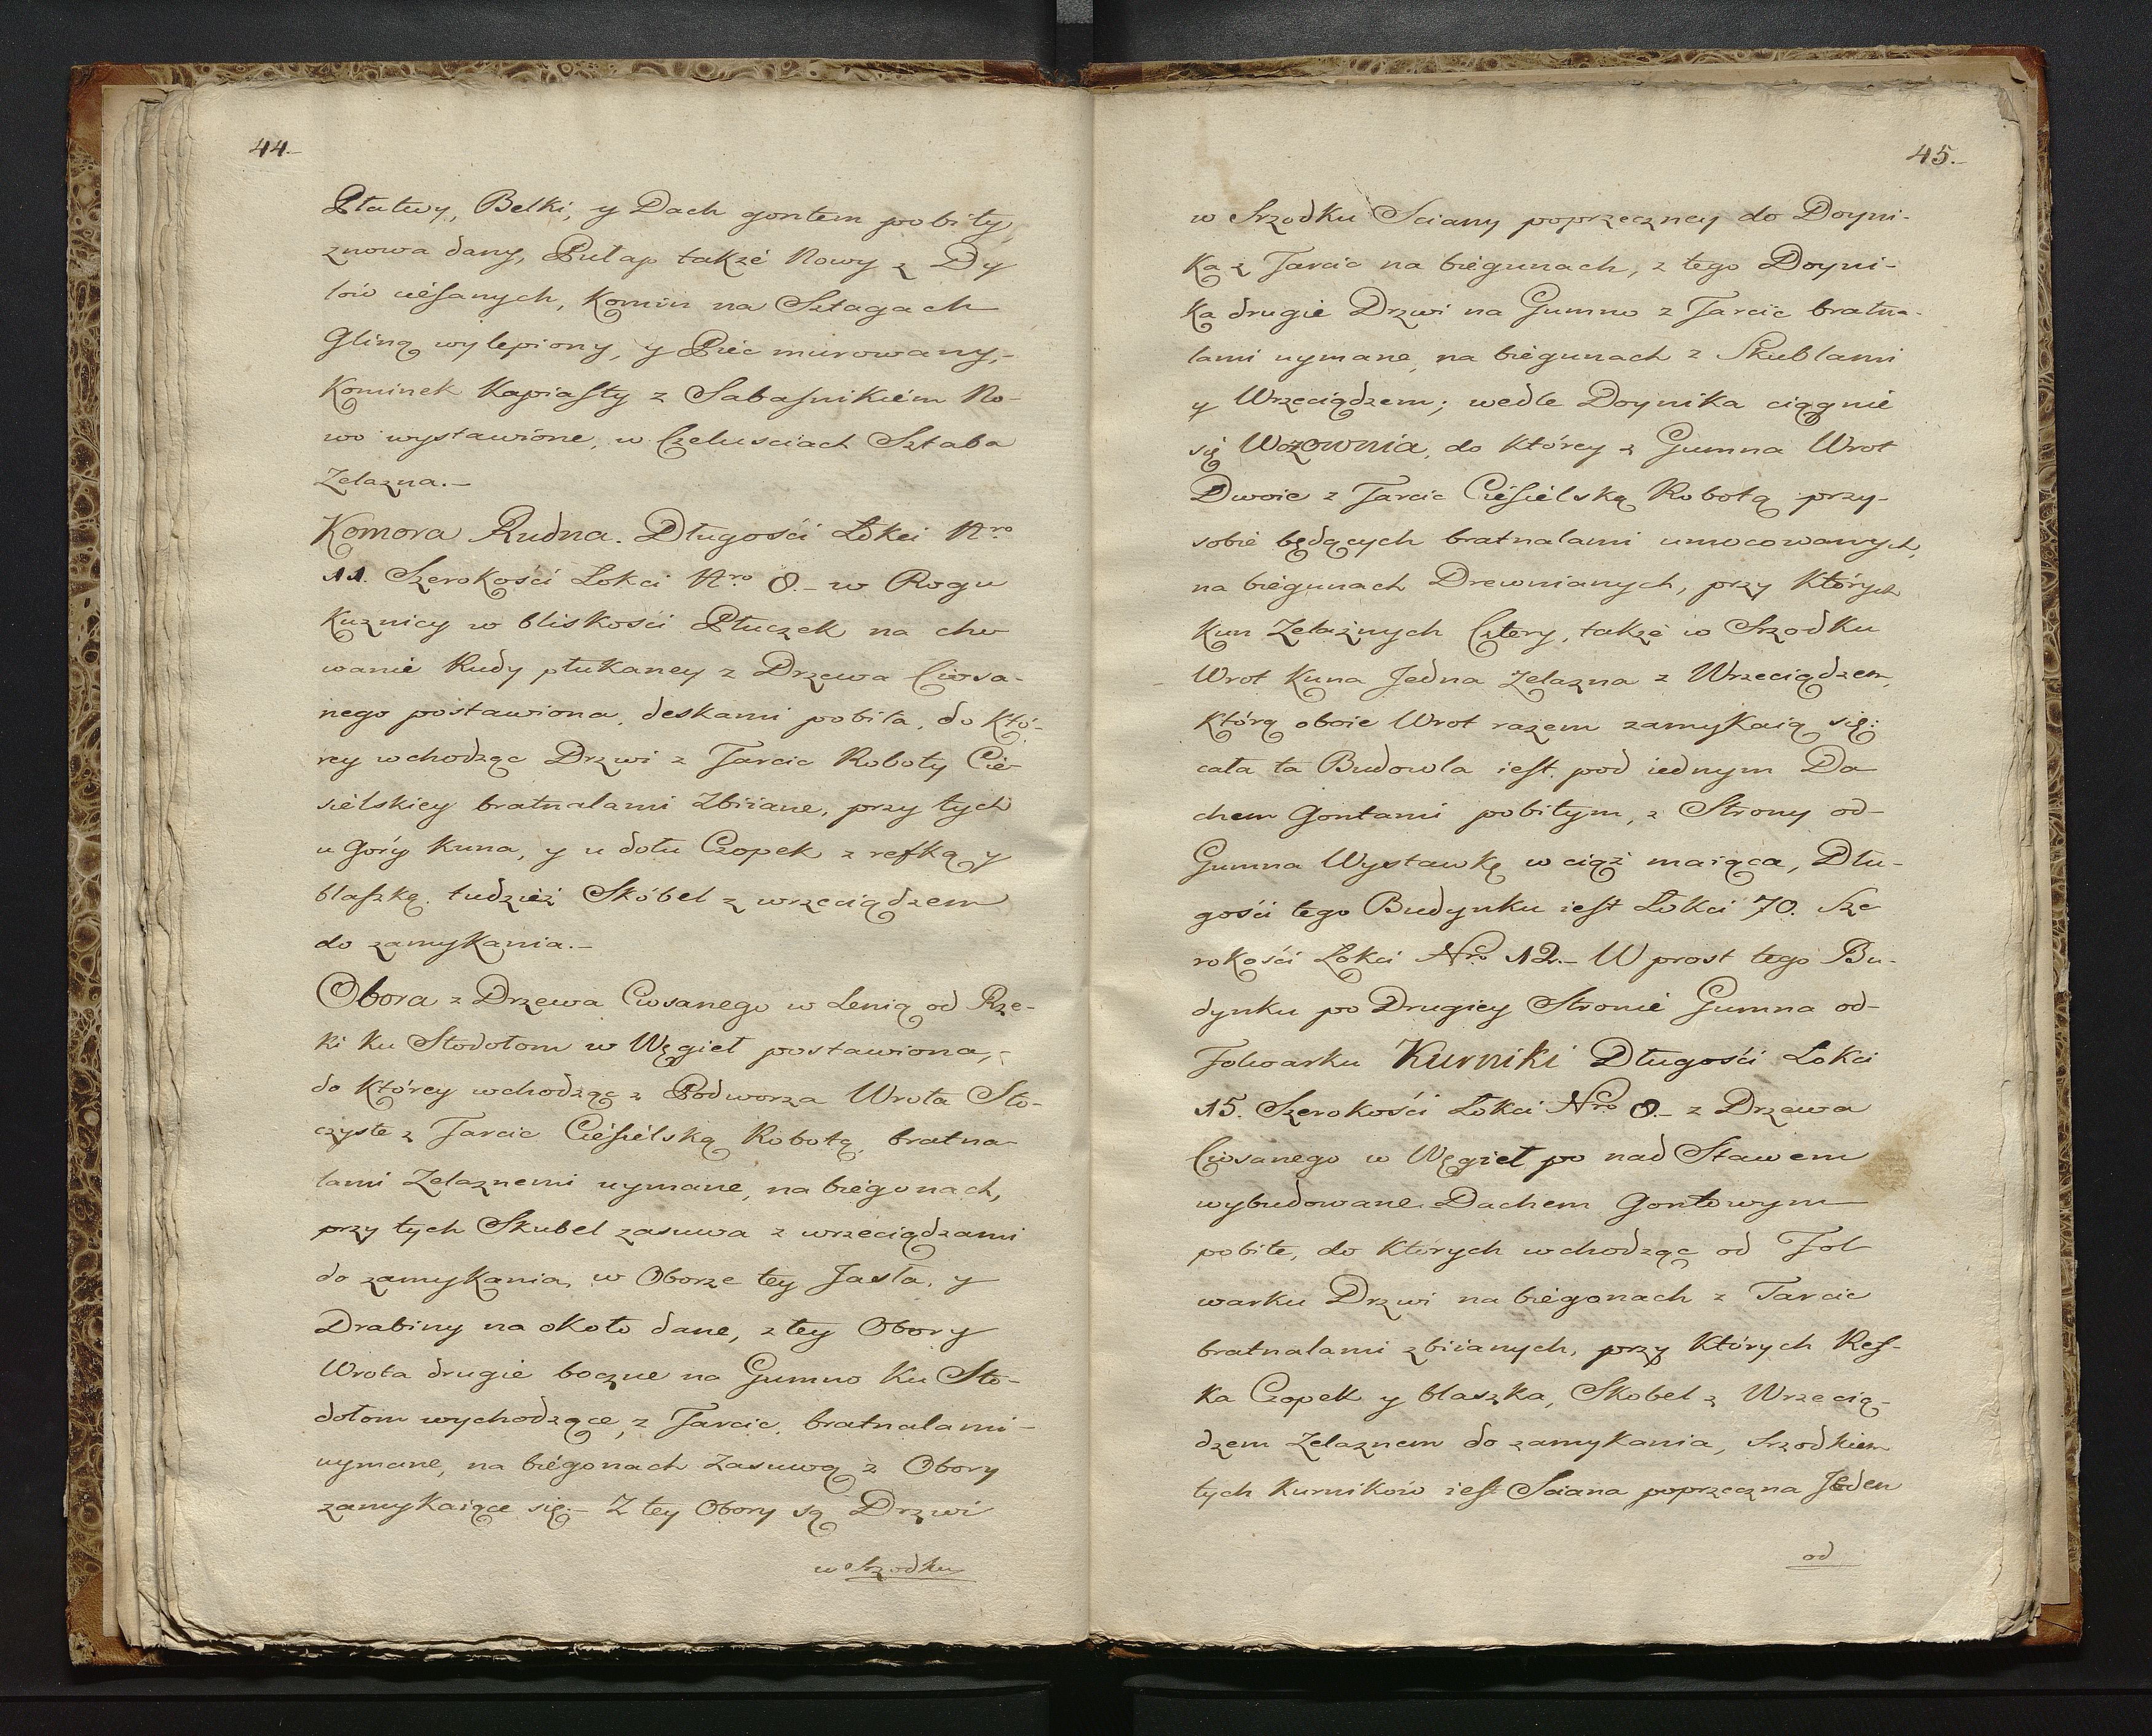 44.
Płatwy, Belki, y Dach gontem pobity
znowa dany, Pułap także Nowy z Dy
lów ciésanych, Komin na Sztagach
Gliną wylepiony, y Piec murowany,-
Kominek Kapiasty z Sabasnikiém No-
wo wystawióne, w Czelusciach Sztaba
Zelazna.-
Komora Rudna. Długości Łokci Nro
11. Szerokości Łokci Nro 8.- w Rogu
Kuznicy w bliskości Płuczek na cho
wanié Rudy płukaney z Drzewa Ciosa-
nego postawiona, deskami pobita, do Któ-
rey wchodząc Drzwi z Tarcic Roboty Cie-
siélskiey bratnalami Zbiiane, przy tych
u Góry Kuna, y u dołu Czopek z refką y
blaszką, tudzież Skóbel z wrzeciądzem
do zamykania.-
Obora z Drzewa Ciosanego w Lenią od Rze-
ki Ku Stodołom w Węgieł postawiona,-
do Którey wchodząc z Podworza Wrota Sto-
czyste z Tarcic Ciésiélską Robotą, bratna-
lami Zelaznemi uymane, na biégonach,
przy tych Skubel zasuwa z wrzeciądzami
do zamykania, w Oborze tey Jasła, y
Drabiny na około dane, z tey Obory
Wrota drugie boczne na Gumno Ku Sto-
dołom wychodzące, z Tarcic, bratnalami-
uymane, na biégonach Zasuwą z Obory
zamykaiące się.- Z tey Obory są Drzwi
w Srzodku
45.-
w Srzodku Sciany poprzeczney do Doyni-
Ka z Tarcic na biégunach, z tego Doyni-
Ka drugié Drzwi na Gumno z Tarcic bratna-
lami uymane, na biégunach z Skublami
y Wrzeciądzem; wedle Doynika ciągnié
się Wozownia, do Którey z Gumna Wrot
Dwoie z Tarcic Ciésiélską Robotą przy-
sobié będących bratnalami umocowanych,
na biégunach Drewnianych, przy Których
Kun Zelaznych Cztery, także w Srzodku
Wrot Kuna Jedna Zelazna z Wrzeciądzem,
Którą oboie Wrot razem zamykaią się:
cała ta Budowla iest pod iednym Da
chem Gontami pobitym, z Strony od-
Gumna Wystawkę w ciąż maiąca, Dłu-
gości tego Budynku iest Łokci 70. Sze
rokości Łokci Nro 12.- W prost tego Bu-
dynku po Drugiey Stronié Gumna od-
Folwarku Kurniki Długości Łokci
15. Szerokości Łokci Nro 8.- z Drzewa
Ciosanego w Węgieł po nad Stawem
wybudowane Dachem Gontowym
pobite, do Których wchodząc od Fol
warku Drzwi na biégonach z Tarcic
bratnalami zbiianych, przy Których Ref-
Ka Czopek y blaszka, Skobel z Wrzecią-
dzem Zelaznem do zamykania, Srzodkiem
tych Kurników iest Sciana poprzeczna Jeden
od